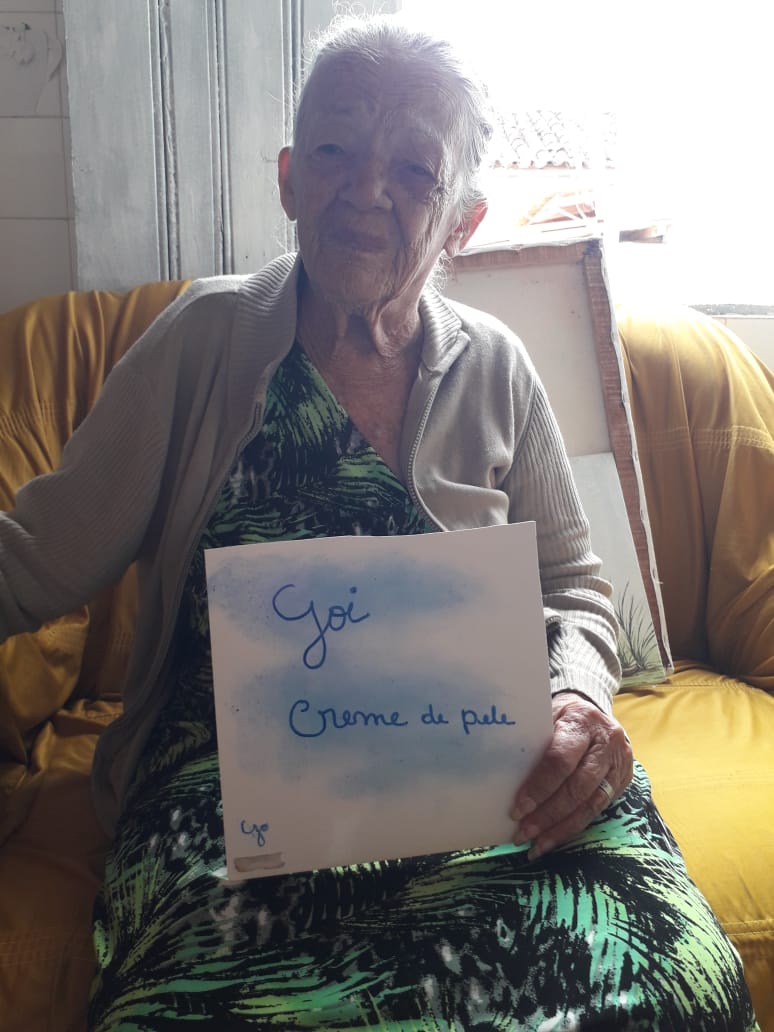 Goi
Creme de pele
Go